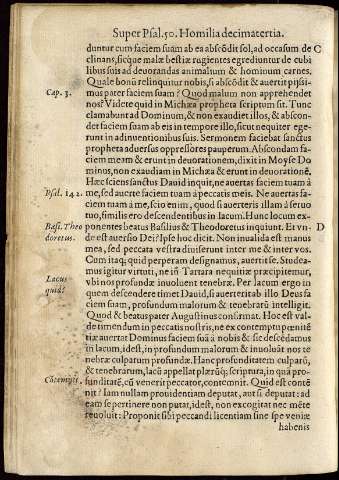 Super Psal. 50. Homilia decimatertia.
duntur cum faciem suam ab ea abscõdit sol, ad occasum de C
clinans, sicque malæ bestiæ rugientes egrediuntur de cubi
libus suis ad deuorandas animalium & hominum carnes.
Quale bonũ relinquitur nobis, si abscõdit & auertit pijssi
Cap. 3. mus pater faciem suam? Quod malum non apprehendet
nos? Videte quid in Michæa propheta scriptum sit. Tunc
clamabunt ad Dominum, & non exaudiet illos, & abscon-
det faciem suam ab eis in tempore illo, sicut nequiter ege-
runt in adinuentionibus suis. Sermonem faciebat sanctus
propheta aduersus oppressores pauperum. Abscondam fa-
ciem meam & erunt in deuorationem, dixit in Moyse Do
minus, non exaudiam in Michæa & erunt in deuorationẽ.
Hæc sciens sanctus Dauid inquit, ne auertas faciem tuam à
Psal. 142. me, sed auerte faciem tuam à peccatis meis. Ne auertas fa-
ciem tuam à me, scio enim, quod si auerteris illam à seruo
tuo, similis ero descendentibus in lacum. Hunc locum ex-
Basi. Theo ponentes beatus Basilius & Theodoretus inquiunt. Et vn- D
doretus. de est auersio Dei? Ipse hoc dicit. Non inualida est manus
mea, sed peccata vestra diuiserunt inter me & inter vos.
Com itaq; quid perperam designamus, auertit se. Studea-
mus igitur virtuti, ne in Tartara nequitiæ præcipitemur,
Lacus vbi nos profundæ inuoluent tenebræ. Per lacum ergo in
quid? quem descendere timet Dauid, si auerterit ab illo Deus fa
ciem suam, profundum malorum & tenebrarũ intelligit.
Quod & beatus pater Augustinus confirmat. Hoc est val-
de timendum in peccatis nostris, ne ex contemptu pœnitẽ
tiæ auertat Dominus faciem suã à nobis & sic descẽdamus
in lacum, idest, in profundum malorum & inuoluãt nos te
nebræ culparum profundæ. Hanc profunditatem culparũ,
& tenebrarum, lacũ appellat plærũq; scriptura, in quã pro-
Cõtempsit. funditatẽ, cũ venerit peccator, contemnit. Quid est contẽ
nit? Iam nullam prouidentiam deputat, aut si deputat: ad
eam se pertinere non putat, idest, non excogitat nec mẽte
reuoluit: Proponit sibi peccandi licentiam sine spe veniæ
habenis